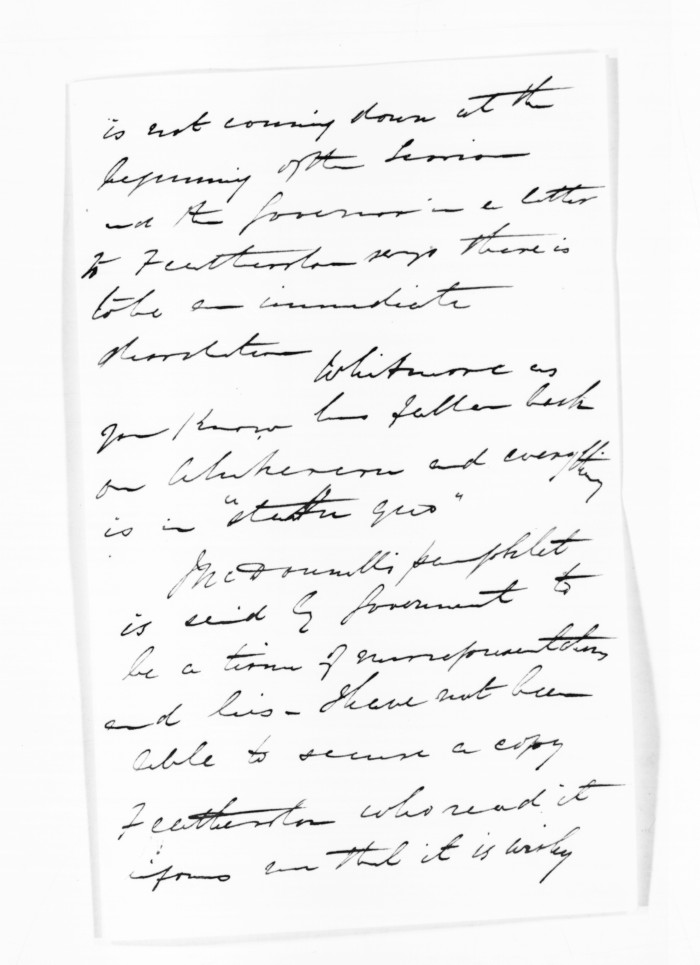 is not coming down at the
beginning of the Session
and the Governor in a letter
to Featherston says there is
to be an immediate
dissolution Whitmore as
you know has fallen back
on and everything
is in "statu quo"
McDonnell's pamphlet
is said by Goverment to
be a tissue of misrepresentations
and lies - I have not been
able to secure a copy
Featherston who read it
informs me that it is